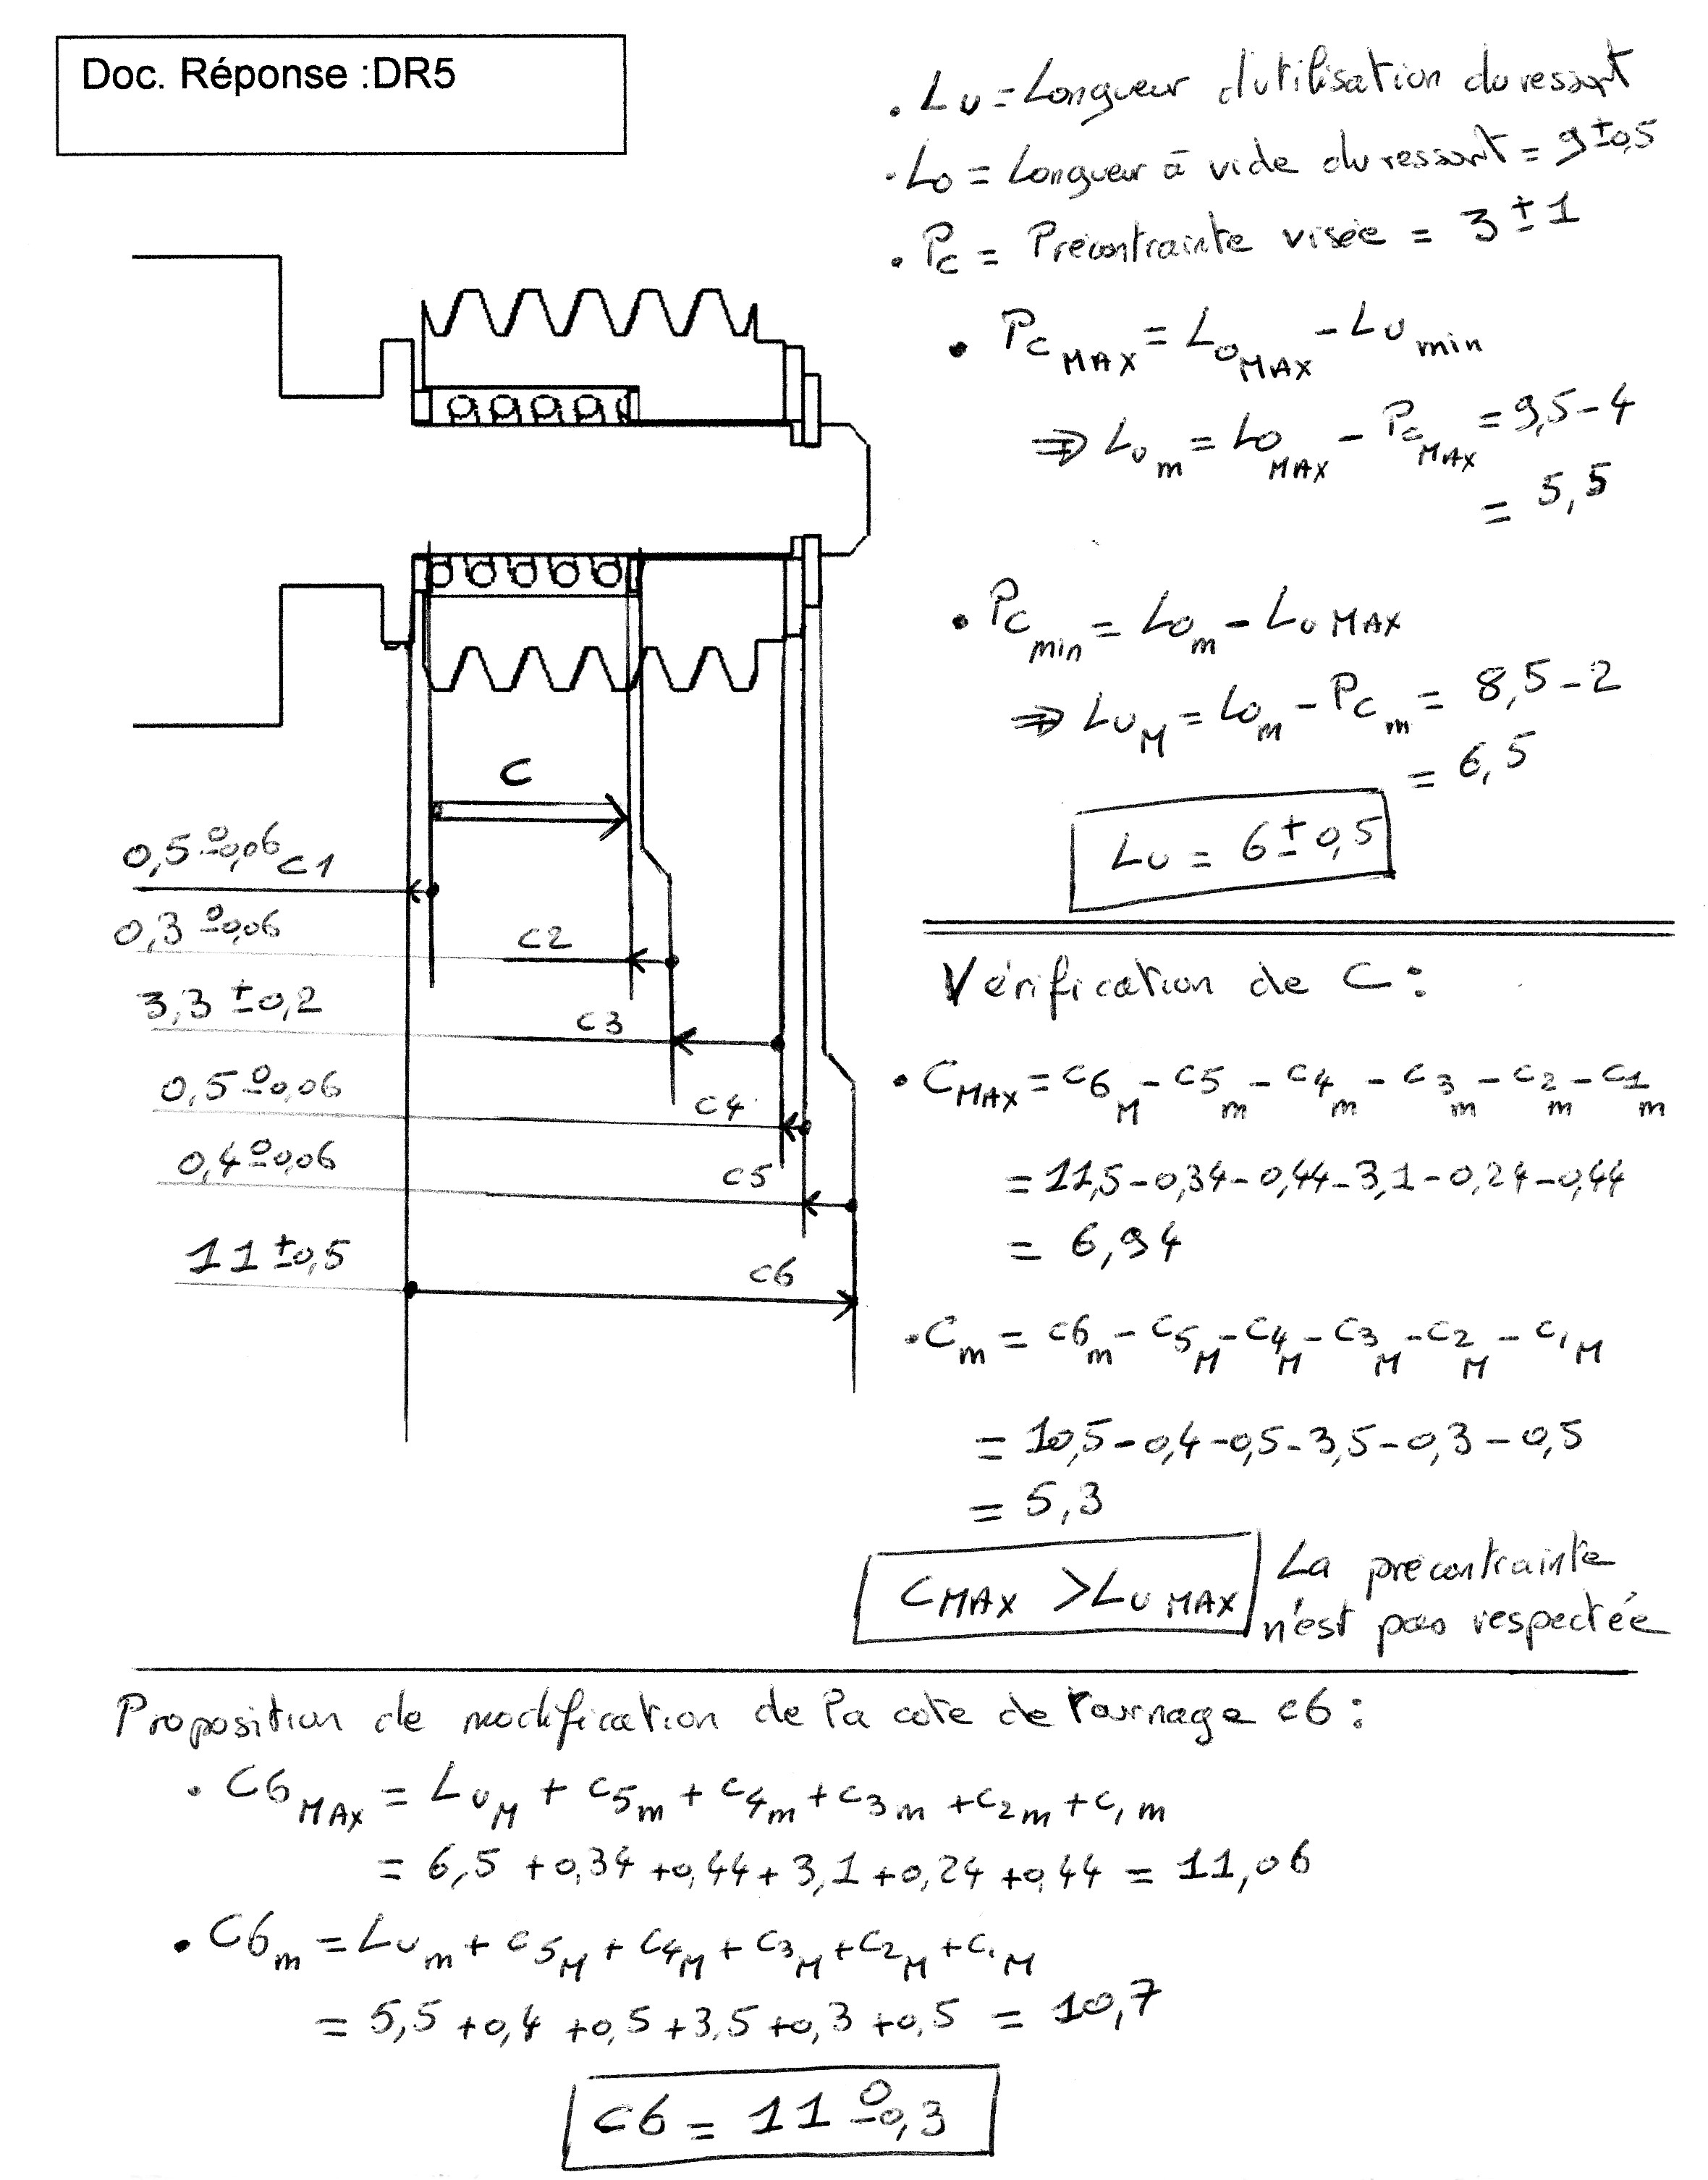 Doc. Réponse :DR5
• Lu = Longueur d'utilisation du ressort
• Lo = Longueur à vide du ressort = 9 ± 0,5
• Pc = Précontrainte visée = 3 ± 1
• Pc MAX = Lo MAX - Lu min
⇒ Lu m = Lo MAX - Pc MAX = 9,5 - 4
= 5,5
• Pc min = Lo m - Lu MAX
⇒ Lu M = Lo m - Pc m = 8,5 - 2
= 6,5
Lu = 6 ± 0,5
C
0,5 0 -0,06 C1
0,3 0 -0,06 C2
3,3 ± 0,2 C3
0,5 0 -0,06 C4
0,4 0 -0,06 C5
11 ± 0,5 C6
Vérification de C :
• C MAX = C6 M - C5 m - C4 m - C3 m - C2 m - C1 m
= 11,5 - 0,34 - 0,44 - 3,1 - 0,24 - 0,44
= 6,94
• C m = C6 m - C5 M - C4 M - C3 M - C2 M - C1 M
= 10,5 - 0,4 - 0,5 - 3,5 - 0,3 - 0,5
= 5,3
C MAX > Lu MAX
La précontrainte
n'est pas respectée
Proposition de modification de la cote de tournage C6 :
• C6 MAX = Lu M + C5 m + C4 m + C3 m + C2 m + C1 m
= 6,5 + 0,34 + 0,44 + 3,1 + 0,24 + 0,44 = 11,06
• C6 m = Lu m + C5 M + C4 M + C3 M + C2 M + C1 M
= 5,5 + 0,4 + 0,5 + 3,5 + 0,3 + 0,5 = 10,7
C6 = 11 0 -0,3